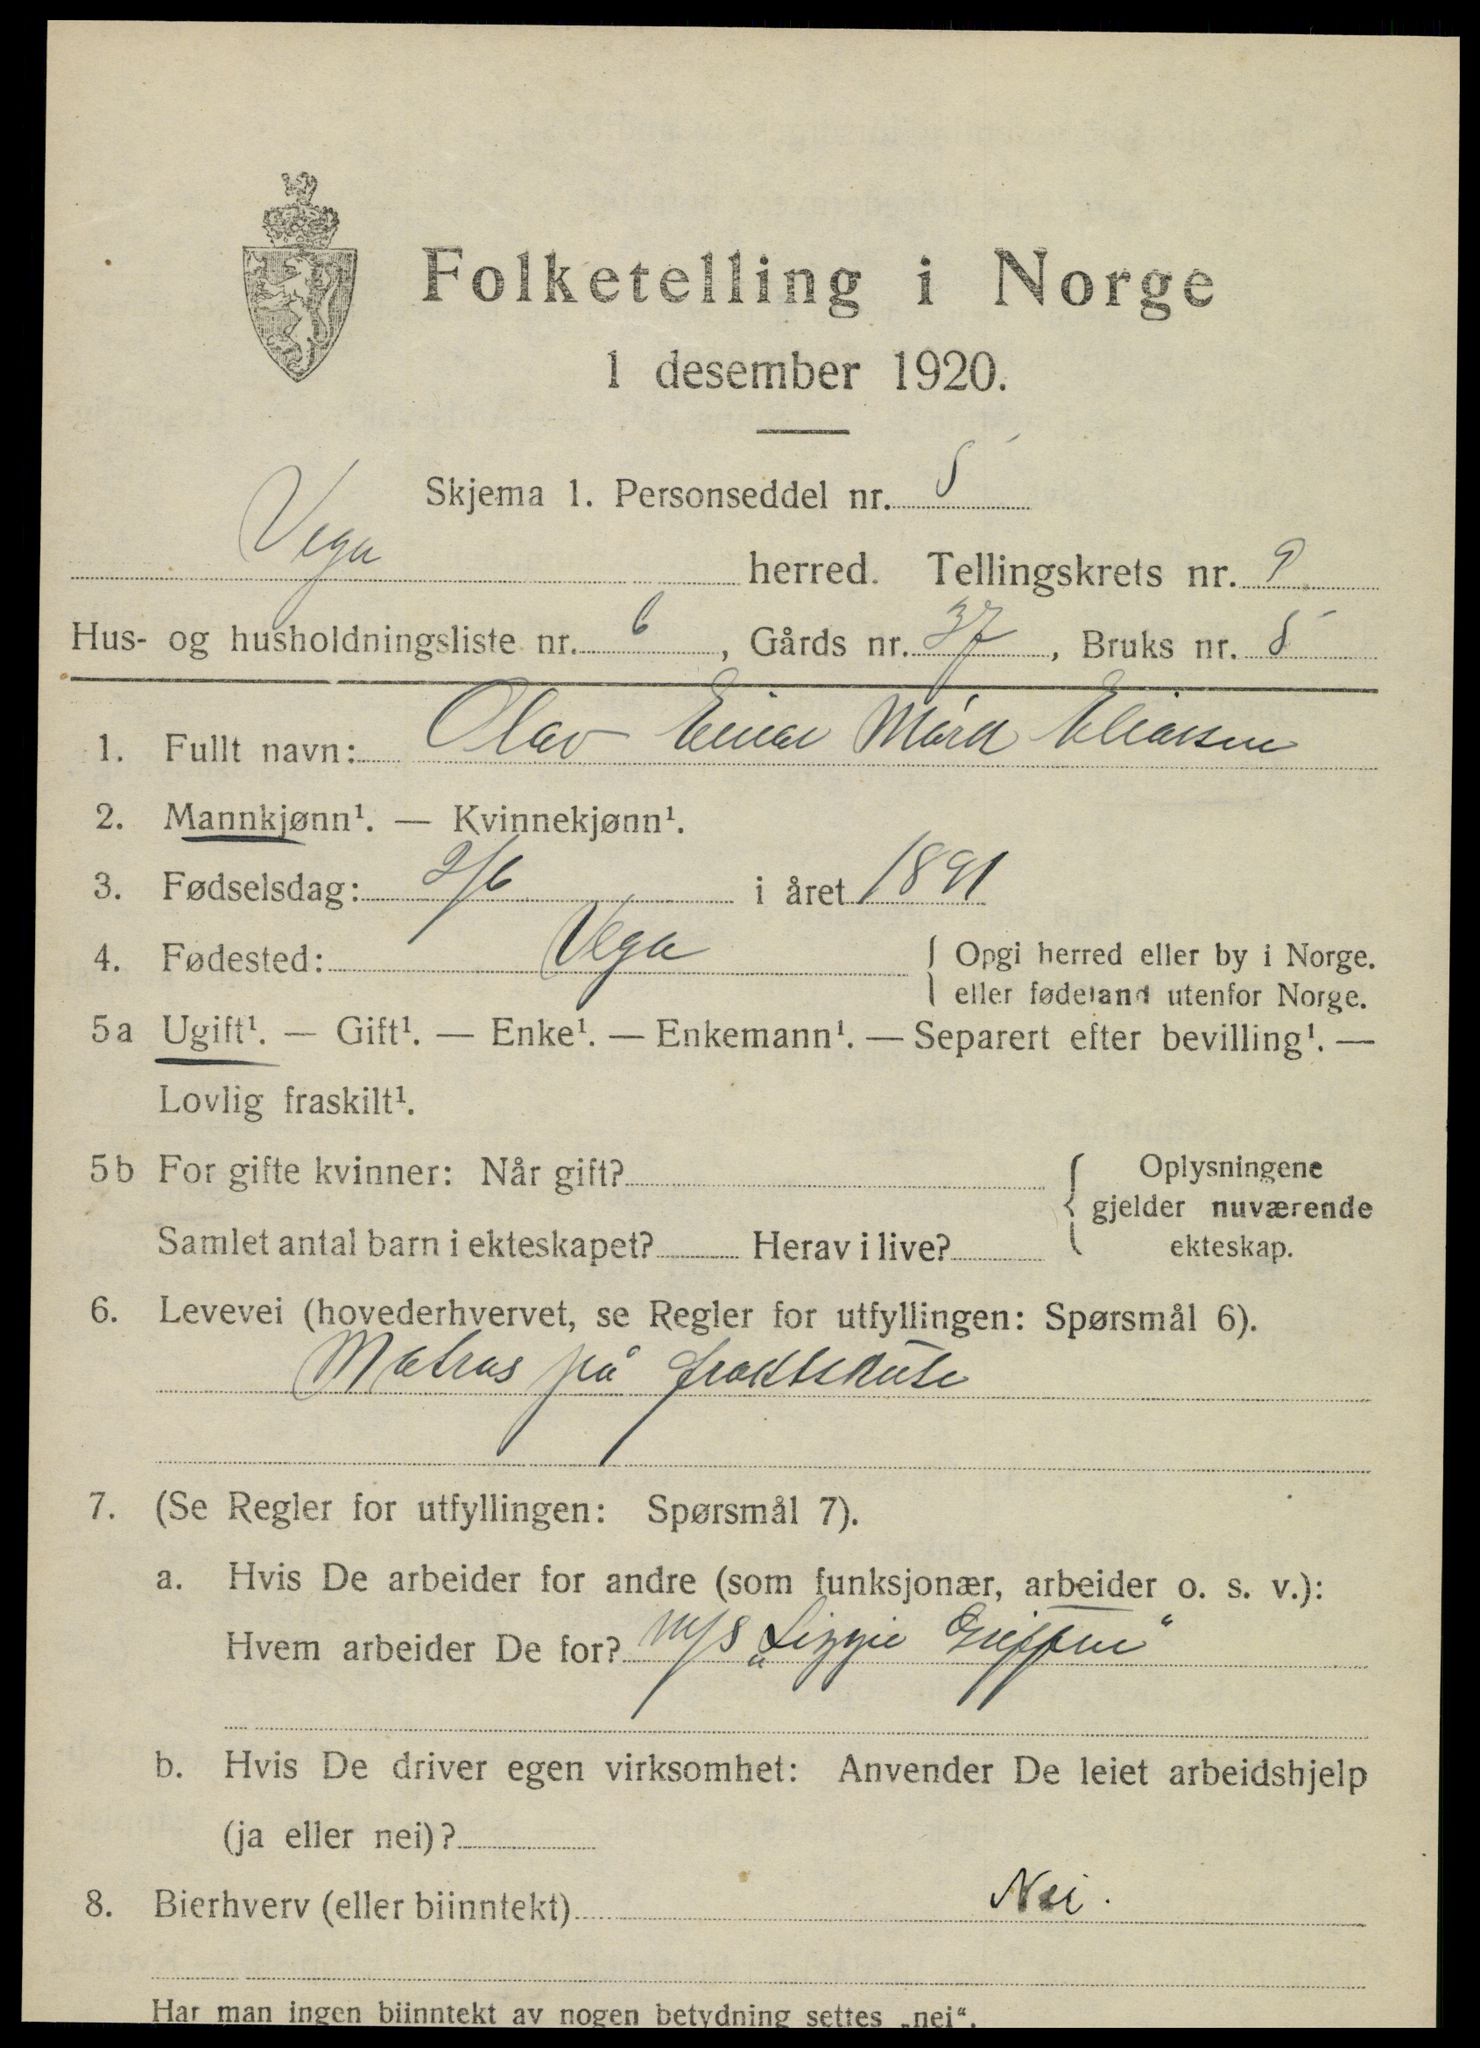 Folketelling i Norge
1 desember 1920.
Skjema 1. Personseddel nr. 5
Vega herred. Tellingskrets nr. 9
Hus- og husholdningsliste nr. 6, Gårds nr. 37, Bruks nr. 5
1. Fullt navn: Olav Einar Mørck Eliassen
2. Mannkjønn¹. — Kvinnekjønn¹.
3. Fødselsdag: 2/6 i året 1891
4. Fødested: Vega { Opgi herred eller by i Norge.
eller fødeland utenfor Norge.
5a Ugift¹. — Gift¹. — Enke¹. — Enkemann¹. — Separert efter bevilling¹. —
Lovlig fraskilt¹.
5b For gifte kvinner: Når gift? { Oplysningene
gjelder nuværende
Samlet antal barn i ekteskapet? Herav i live? ekteskap.
6. Levevei (hovederhvervet, se Regler for utfyllingen: Spørsmål 6).
Matros på fraktskute
7. (Se Regler for utfyllingen: Spørsmål 7).
a. Hvis De arbeider for andre (som funksjonær, arbeider o. s. v.):
Hvem arbeider De for? M/S „Lizzie
b. Hvis De driver egen virksomhet: Anvender De leiet arbeidshjelp
(ja eller nei)?
8. Bierhverv (eller biinntekt) Nei.
Har man ingen biinntekt av nogen betydning settes „nei“.